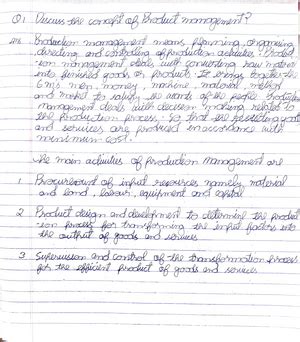 Q1 Discuss the concept of Product management?
Ans Production management means planning, organising
directing and controlling of production activities. Product
-ion management deals with converting raw material
into finished goods or products. It brings together the
6 m's men, money, machine, material, method
and market to satisfy the wants of the people. Production
management deals with decision making related to
the production process. So that the resulting goods
and services are produced in accordance with
minimum cost.
The main activities of production management are
1 Procurement of input resources namely material
and land, labour, equipment and capital
2 Product design and development to determine the product
-ion process for transforming the input factors into
the output of goods and services
3 Supervision and control of the transformation process
for the efficient product of goods and services